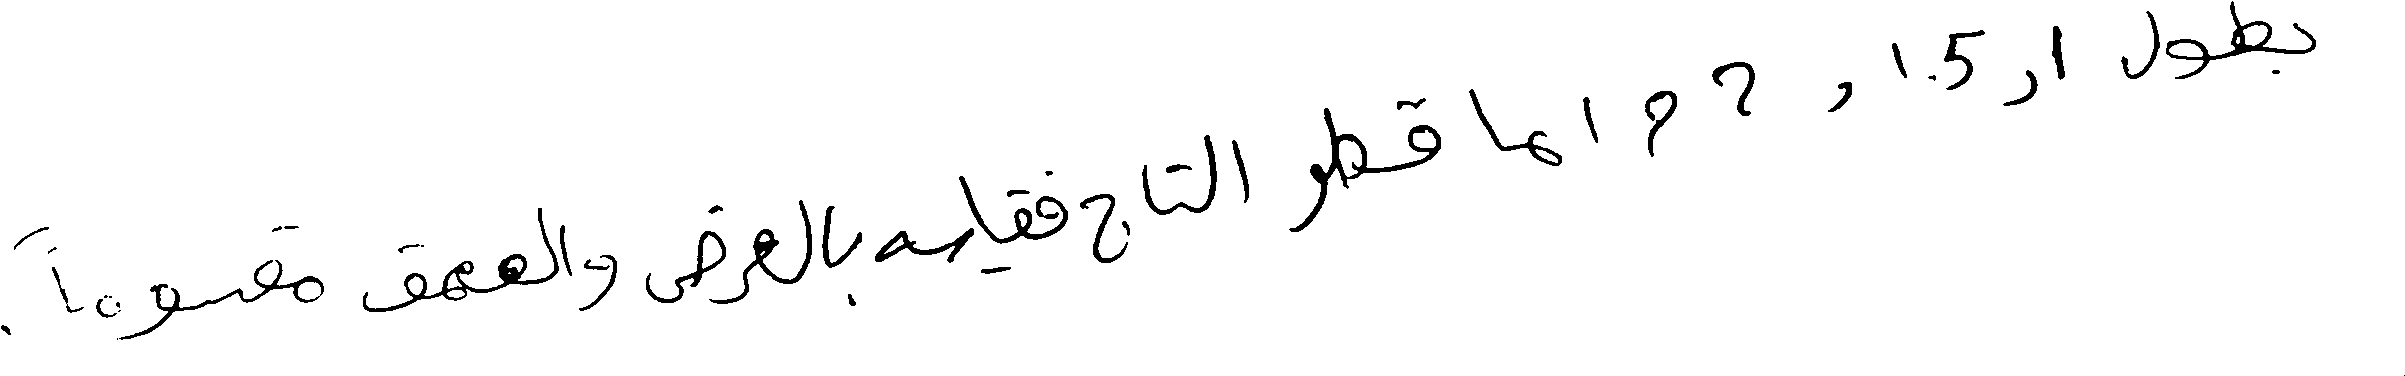 بطول 1ر1.5 , 2 م اما قطر التاج فقياسه بالعرض والعمق مقسوماً.